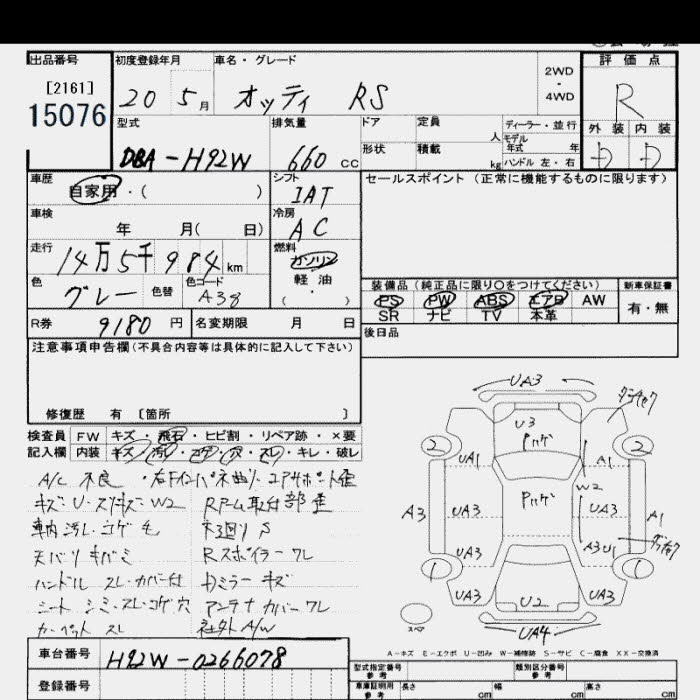 出品番号
[2161]
15076
初度登録年月
20 5月
車名・グレード
オッティ RS
2WD
・
4WD
評価点
R
外装 内装
D D
型式
DBA-H92W
排気量
660 cc
ドア
定員
人
形状
積載
kg
ディーラー・並行
モデル年式 年
ハンドル 左・右
車歴
自家用・( )
シフト
IAT
セールスポイント (正常に機能するものに限ります)
車検
年 月( 日)
冷房
AC
走行
14万5千984 km
燃料
ガソリン
軽油
( ・ )
色
グレー
色替
色コード
A38
装備品 (純正品に限り○をつけてください)
新車保証書
PS PW ABS エアB AW
SR ナビ TV 本革
有・無
R券
9180 円
名変期限 月 日
後日品
注意事項申告欄 (不具合内容等は具体的に記入して下さい)
修復歴 有 〔箇所 〕
検査員記入欄
FW キズ・飛石・ヒビ割・リペア跡・×要
内装 キズ・汚れ・コゲ・穴・スレ・キレ・破レ
A/C 不良 ・右Fインパネ曲り・コアサポート歪
キズ・U・スリキズ・W2 Rアーム取付部歪
車内汚レ・コゲ・毛 下廻りS
天バリキバミ Rスポイラーワレ
ハンドル スレ・カバー付 Dミラーキズ
シート シミ・スレ・コゲ穴 アンテナカバーワレ
カーペット スレ 社外A/W
UA3
U3
2 2
UA1 A1
W2
A3 UA3 UA3 A1
UA3 A3U1
1 1
UA3 U2 UA3
UA4
スペア
A-キズ E-エクボ U-凹み W-補修跡 S-サビ C-腐食 XX-交換済
車台番号
H92W-0266078
登録番号
型式指定番号
参考
類別区分番号
参考
車庫証明用
参考
長さ cm
幅 cm
高さ cm